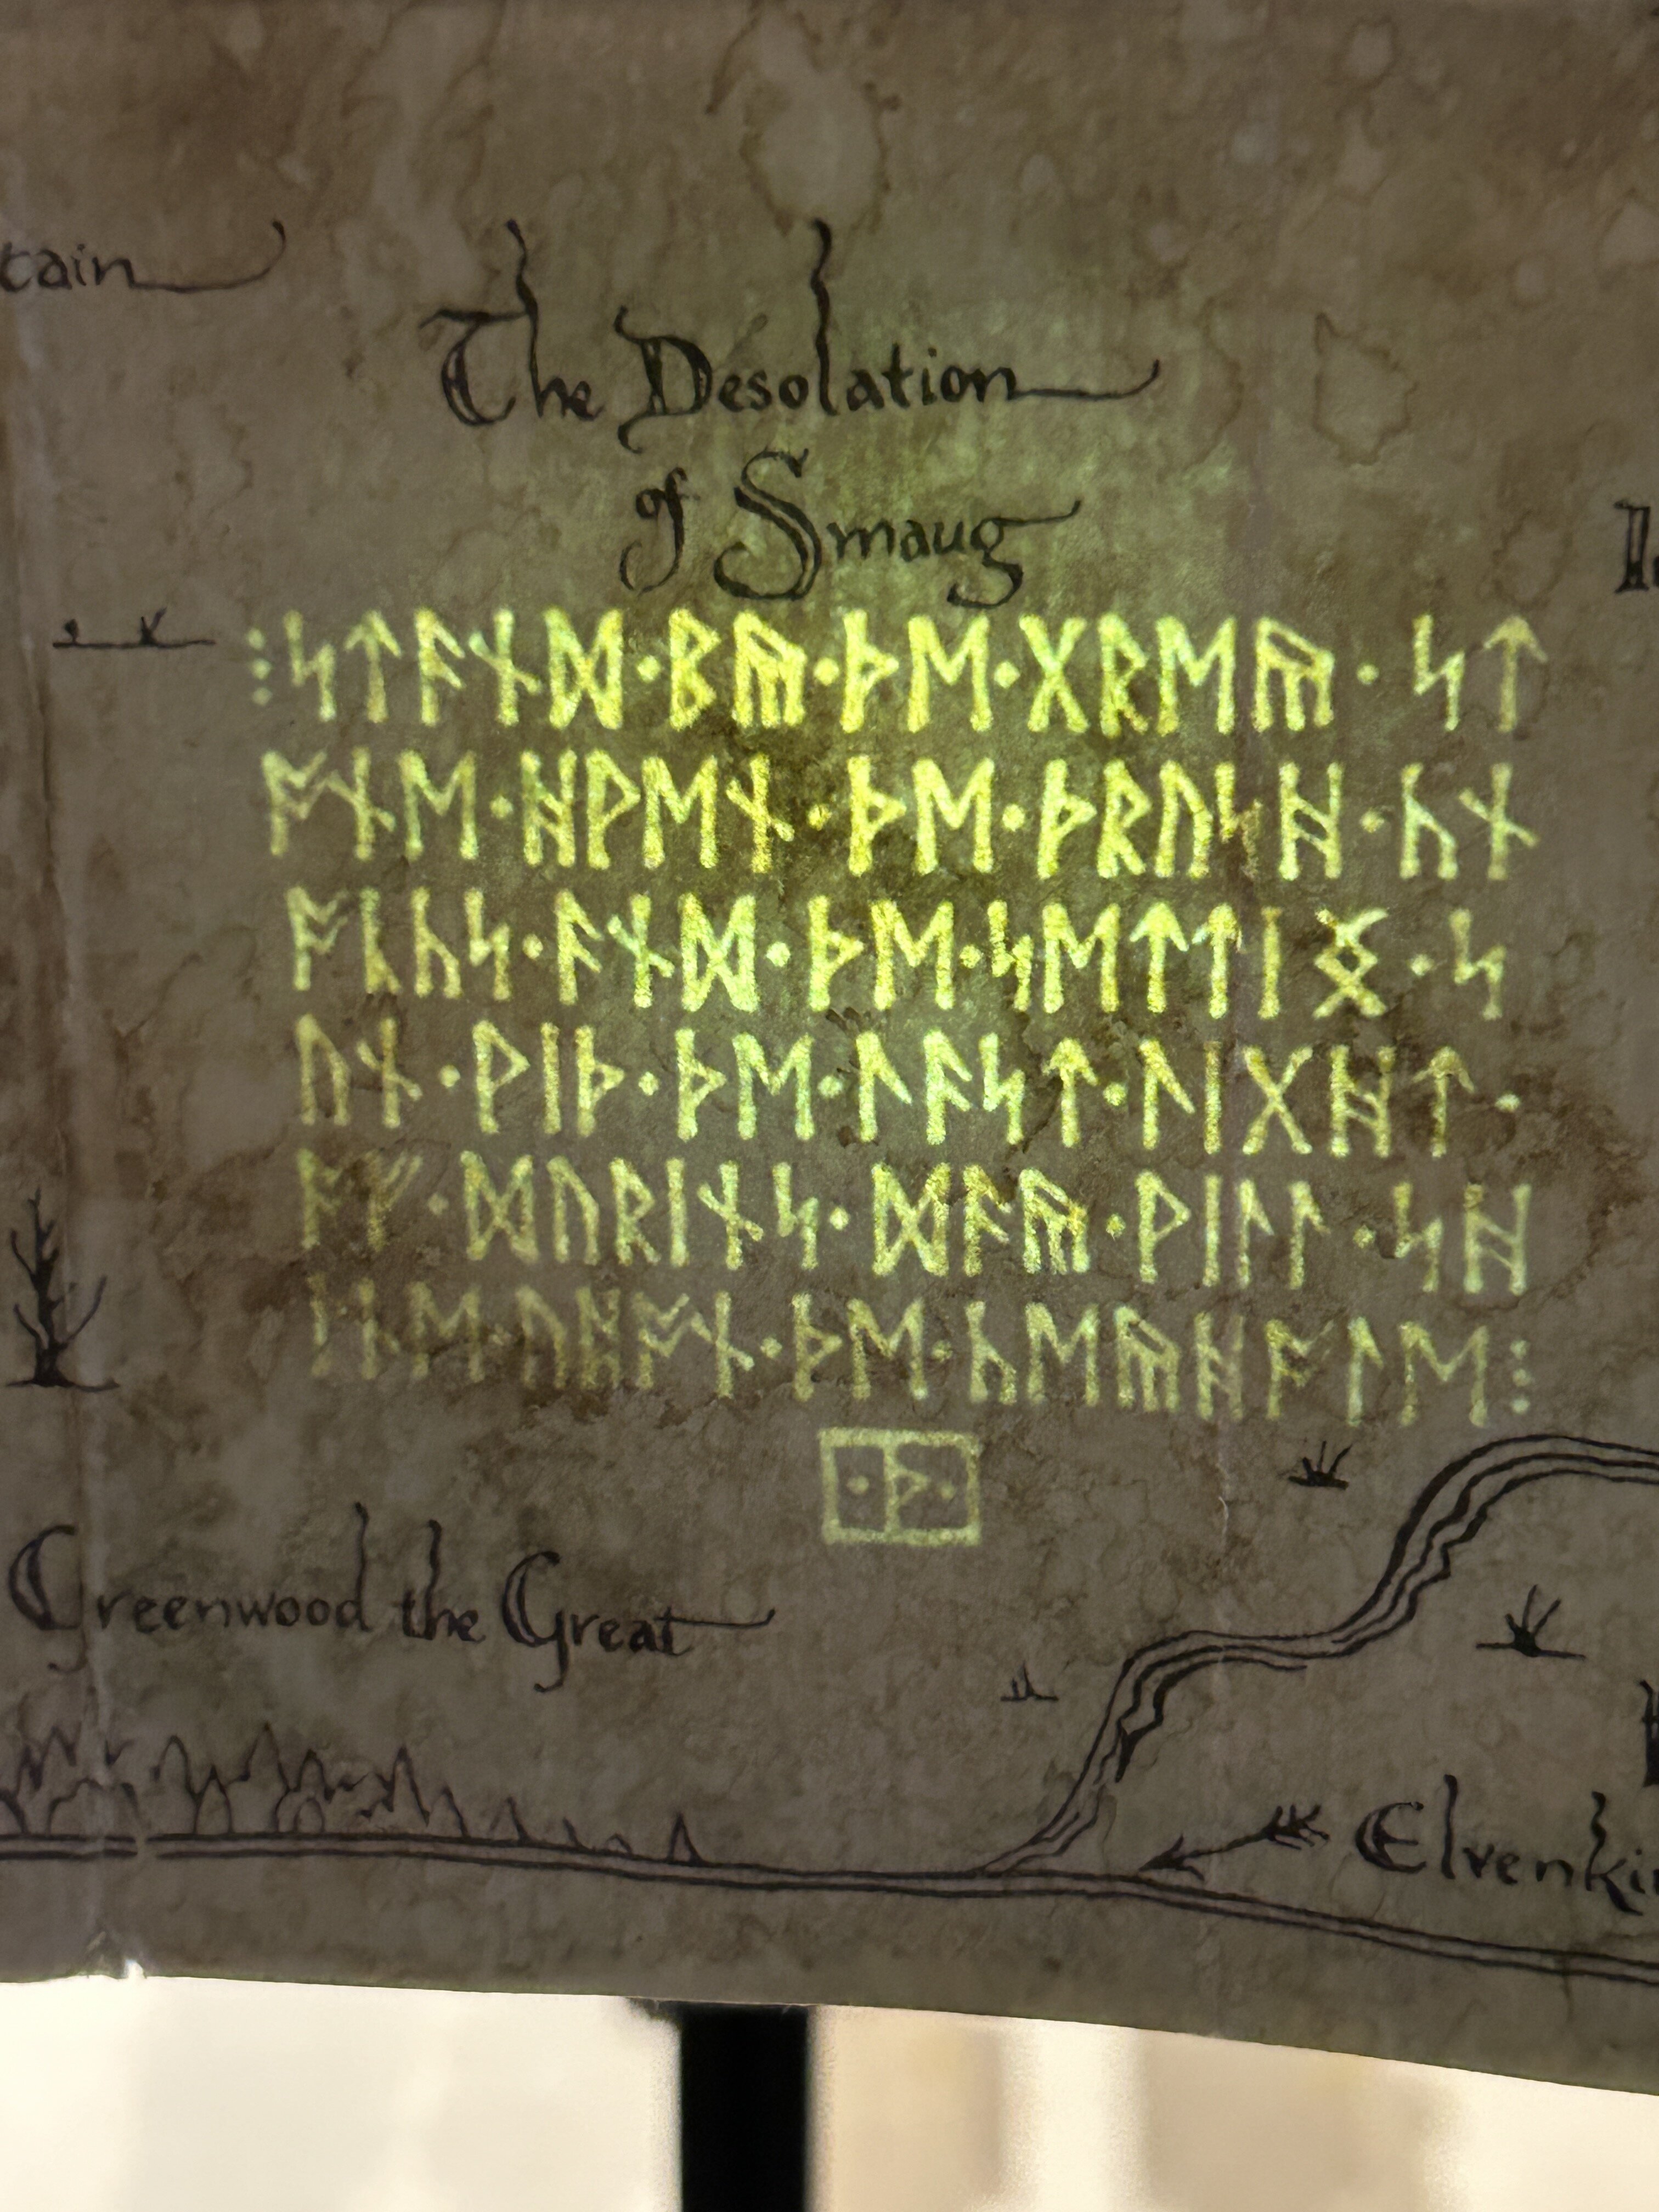 tain
The Desolation
of Smaug
⁝ᛋᛏᚪᚾᛞ·ᛒᚣ·ᚦᛖ·ᚷᚱᛖᚣ·ᛋᛏ
ᚩᚾᛖ·ᚻᚹᛖᚾ·ᚦᛖ·ᚦᚱᚢᛋᚻ·ᚳᚾ
ᚩᚳᚳᛋ·ᚪᚾᛞ·ᚦᛖ·ᛋᛖᛏᛏᛁᛝ·ᛋ
ᚢᚾ·ᚹᛁᚦ·ᚦᛖ·ᛚᚪᛋᛏ·ᛚᛁᚷᚻᛏ·
ᚩᚠ·ᛞᚢᚱᛁᚾᛋ·ᛞᚪᚣ·ᚹᛁᛚᛚ·ᛋᚻ
ᛁᚾᛖ·ᚢᛈᚩᚾ·ᚦᛖ·ᚳᛖᚣᚻᚩᛚᛖ⁝
·ᚦ·
Greenwood the Great
Elvenki